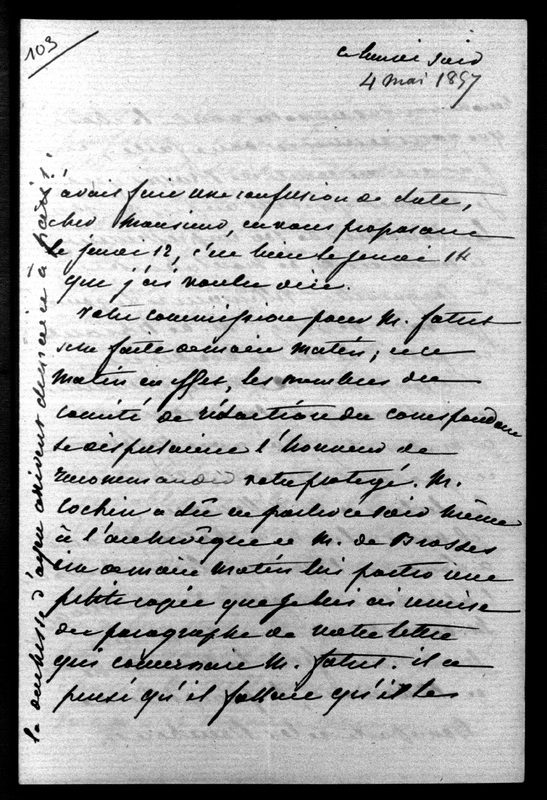 103
ce lundi soir
4 mai 1857
j'avais fait une confusion de date,
cher Monsieur, en vous proposant
le jeudi 12, c'est bien le jeudi 14
que j'ai voulu dire.
votre commission pour M.
sera faite demain matin, ce
matin en effet, les membres du
comité de rédaction du correspondant
se disputaient l'honneur de
recommander votre protégé. M.
Cochin a dû en parler ce soir même
à l'archevêque et M. de Brosses
ira demain matin lui porter une
petite copie que je lui ai remise
du paragraphe de votre lettre
qui concernait M. il a
pensé qu'il fallait qu'il
la duchesse d'ayen arrivent demain à Paris!